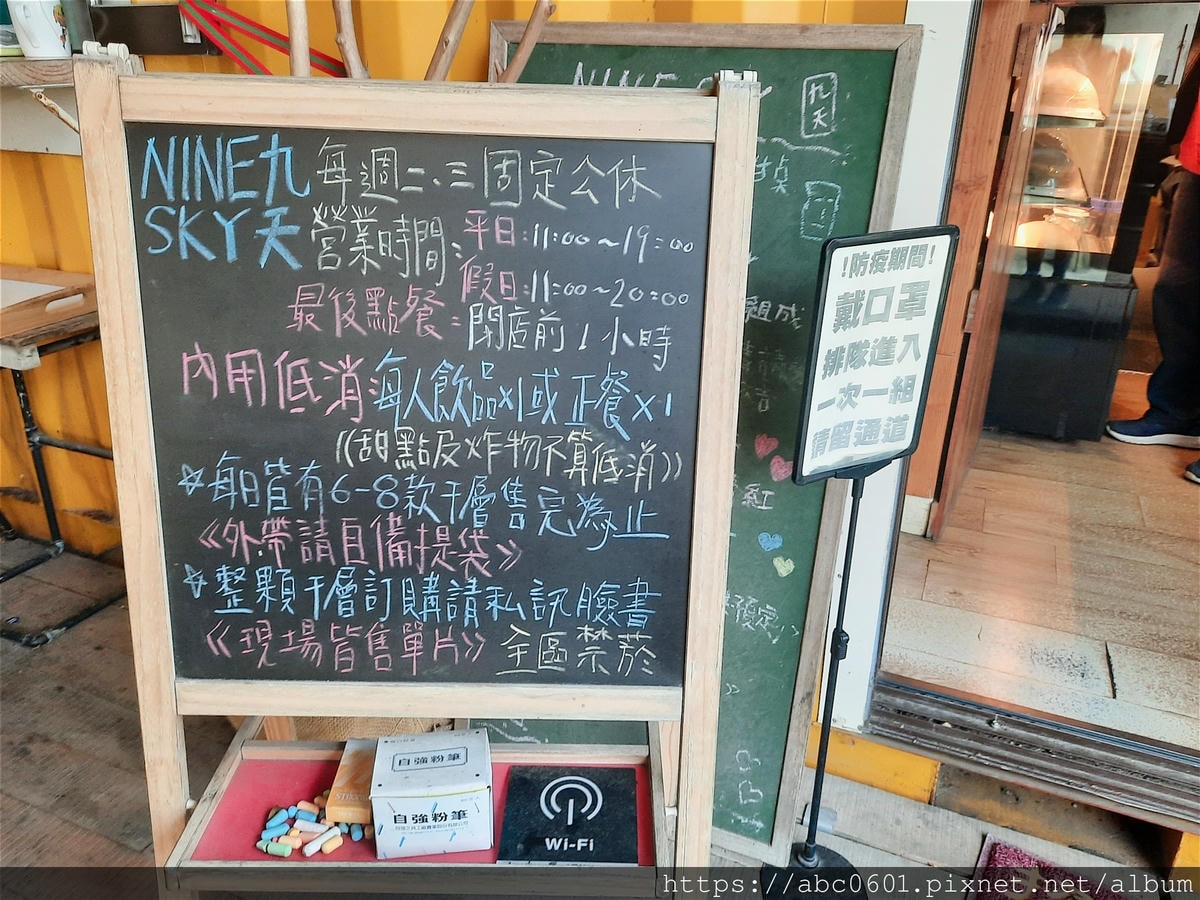 NINE九
SKY天
每週二、三固定公休
營業時間:平日:11:00~19:00
假日:11:00~20:00
最後點餐:閉店前1小時
內用低消:每人飲品x1或正餐x1
((甜點及炸物不算低消))
☆每日皆有6-8款千層售完為止
《外帶請自備提袋》
☆整顆千層訂購請私訊臉書
《現場皆售單片》全區禁菸
NINE
九天
組成
紅
預定
!防疫期間!
戴口罩
排隊進入
一次一組
請留通道
自強粉筆
自強粉筆
Wi-Fi
https://abc0601.pixnet.net/album